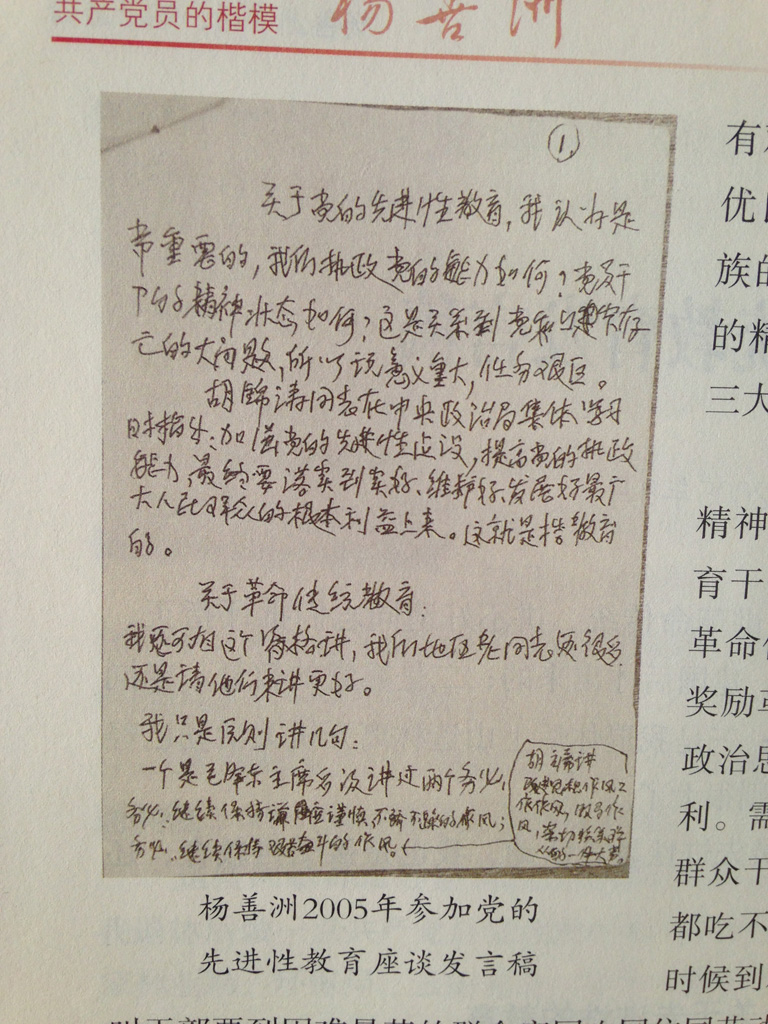 共产党员的楷模 杨善洲
①
关于党的先进性教育,我认为是
常重要的,我们执政党的能力如何?党及干
下的精神状态如何?这是关系到党和
亡的大问题,所以说意义重大,任务艰巨。
胡锦涛同志在中央政治局集体学习
时指出:加强党的先进性建设,提高党的执政
能力,最终要落实到实现、维护好、发展好最广
大人民群众的根本利益上来。这就是 教育
的。
关于革命传统教育:
我还不 这个资格讲,我们地区老同志还很多,
还是请他们来讲更好。
我只是原则讲几句:
一个是毛泽东主席多次讲过两个务必,
务必,继续保持谦虚谨慎、不骄不躁的作风;
务必,继续保持艰苦奋斗的作风。
胡主席讲
思想作风、工
作作风,
风,密切联系群
众的一件大事。
杨善洲2005年参加党的
先进性教育座谈发言稿
有
优
族的
的精
三大
精神
育干
革命
奖励
政治思
利。需
群众干
都吃不
时候到